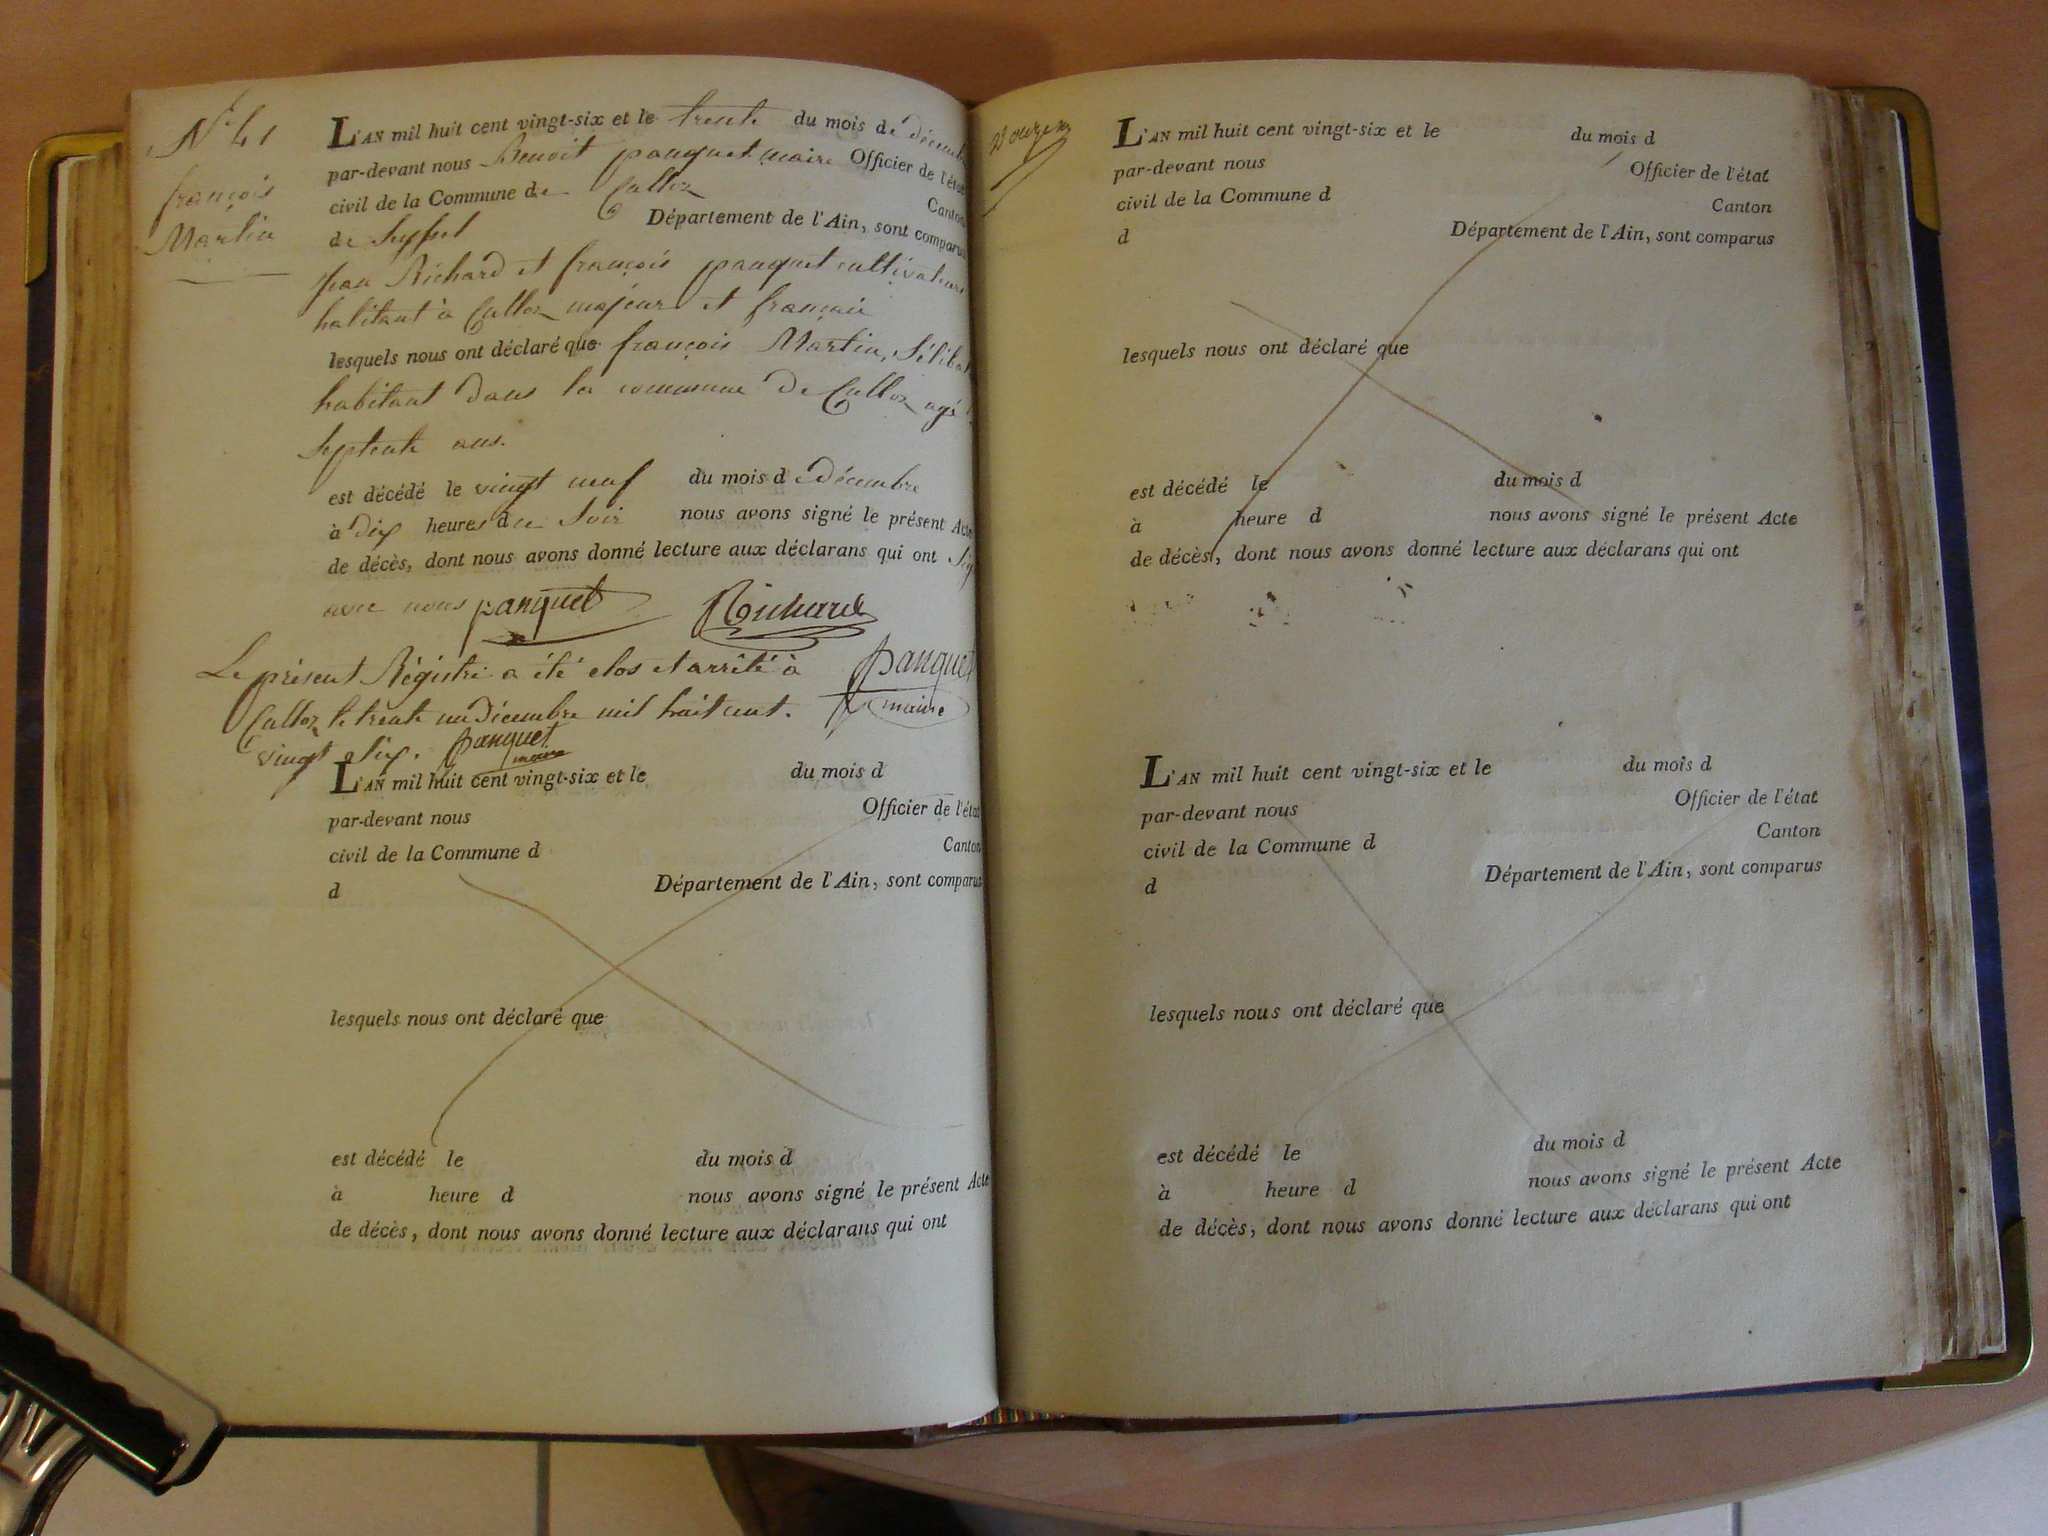 N° 41
françois
Martin
L'AN mil huit cent vingt-six et le trente du mois de décembre
par-devant nous Benoit panquet maire Officier de l'état
civil de la Commune de Culloz Canton
de Seyssel Département de l'Ain, sont comparus
jean Richard et françois panquet cultivateurs
habitant à Culloz majeurs et français
lesquels nous ont déclaré que françois Martin, Sélibat
habitant dans la commune de Culloz agé
Septente ans.
est décédé le vingt neuf du mois d décembre
à dix heures du Soir nous avons signé le présent Acte
de décès, dont nous avons donné lecture aux déclarans qui ont Sig
avec nous panquet Richard
Le présent Régistre a été clos et arrêté à panquet
Culloz le trente un décembre mil huit cent maire
vingt Six. panquet maire
L'AN mil huit cent vingt-six et le du mois d
par-devant nous Officier de l'état
civil de la Commune d Canton
d Département de l'Ain, sont comparus
lesquels nous ont déclaré que
est décédé le du mois d
à heure d nous avons signé le présent Acte
de décès, dont nous avons donné lecture aux déclarans qui ont
L'AN mil huit cent vingt-six et le du mois d
par-devant nous Officier de l'état
civil de la Commune d Canton
d Département de l'Ain, sont comparus
lesquels nous ont déclaré que
est décédé le du mois d
à heure d nous avons signé le présent Acte
de décès, dont nous avons donné lecture aux déclarans qui ont
L'AN mil huit cent vingt-six et le du mois d
par-devant nous Officier de l'état
civil de la Commune d Canton
d Département de l'Ain, sont comparus
lesquels nous ont déclaré que
est décédé le du mois d
à heure d nous avons signé le présent Acte
de décès, dont nous avons donné lecture aux déclarans qui ont